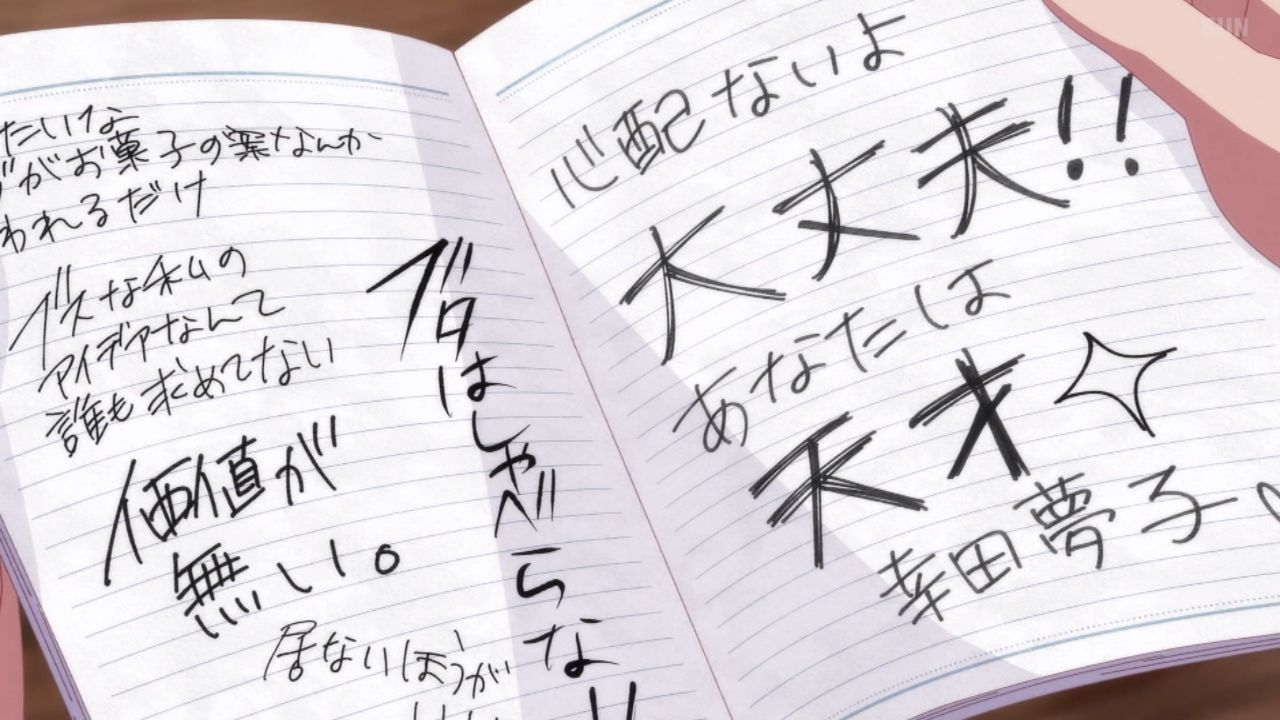 たいな
がお菓子の案なんか
われるだけ
ブスな私の
アイデアなんて
誰も求めてない
価値が
無い。
居ないほうが
ブタはしゃべらな!!
心配ないよ
大丈夫!!
あなたは
天才
幸田夢子